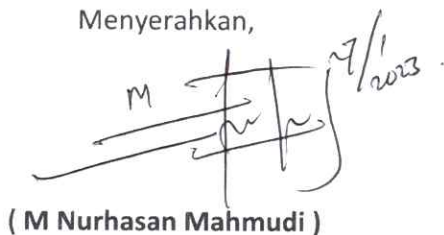 Menyerahkan,
7/1 2023
M
( M Nurhasan Mahmudi )